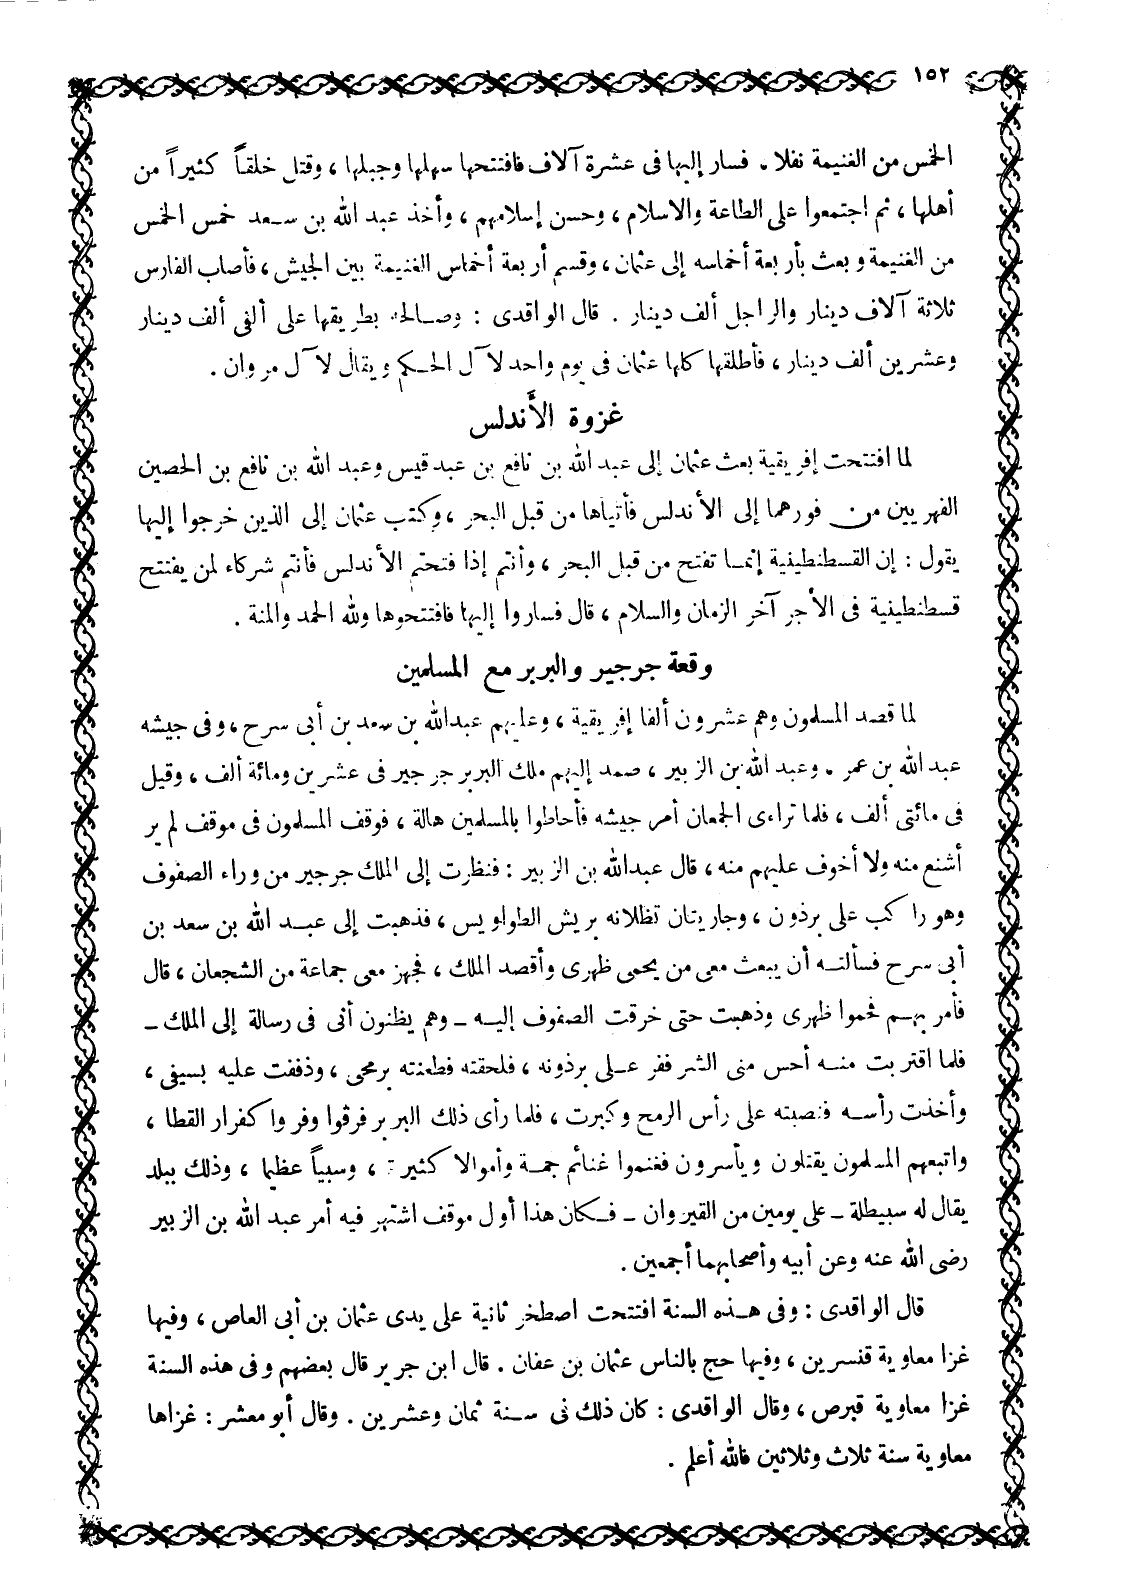 ١٥٢
الخمس من الغنيمة نفلا . فسار إليها فى عشرة آلاف فافتتحها سهلها وجبلها ، وقتل خلقاً كثيراً من
أهلها ، ثم اجتمعوا على الطاعة والاسلام ، وحسن إسلامهم ، وأخذ عبد الله بن سعد خمس الخمس
من الغنيمة وبعث بأربعة أخماسه إلى عثمان ، وقسم أربعة أخماس الغنيمة بين الجيش ، فأصاب الفارس
ثلاثة آلاف دينار والراجل ألف دينار . قال الواقدى : وصالحه بطريقها على ألفى ألف دينار
وعشرين ألف دينار ، فأطلقها كلها عثمان فى يوم واحد لآل الحكم ويقال لآل مروان .
غزوة الأندلس
لما افتتحت إفريقية بعث عثمان إلى عبد الله بن نافع بن عبد قيس وعبد الله بن نافع بن الحصين
الفهريين من فورهما إلى الأندلس فأتياها من قبل البحر ، وكتب عثمان إلى الذين خرجوا إليها
يقول : إن القسطنطينية إنما تفتح من قبل البحر ، وأنتم إذا فتحتم الأندلس فأنتم شركاء لمن يفتتح
قسطنطينية فى الأجر آخر الزمان والسلام ، قال فساروا إليها فافتتحوها ولله الحمد والمنة .
وقعة جرجير والبربر مع المسلمين
لما قصد المسلمون وهم عشرون ألفا إفريقية ، وعليهم عبدالله بن سعد بن أبى سرح ، وفى جيشه
عبد الله بن عمر . وعبد الله بن الزبير ، صمد إليهم ملك البربر جرجير فى عشرين ومائة ألف ، وقيل
فى مائتى ألف ، فلما تراءى الجمعان أمر جيشه فأحاطوا بالمسلمين هالة ، فوقف المسلمون فى موقف لم ير
أشنع منه ولا أخوف عليهم منه ، قال عبدالله بن الزبير : فنظرت إلى الملك جرجير من وراء الصفوف
وهو راكب على برذون ، وجاريتان تظلانه بريش الطواويس ، فذهبت إلى عبد الله بن سعد بن
أبى سرح فسألته أن يبعث معى من يحمى ظهرى وأقصد الملك ، فجهز معى جماعة من الشجعان ، قال
فأمر بهم فحموا ظهرى وذهبت حتى خرقت الصفوف إليه ـ وهم يظنون أنى فى رسالة إلى الملك ـ
فلما اقتربت منه أحس منى الشر ففر على برذونه ، فلحقته فطعنته برمحى ، وذففت عليه بسيفى ،
وأخذت رأسه فنصبته على رأس الرمح وكبرت ، فلما رأى ذلك البربر فرقوا وفروا كفرار القطا ،
واتبعهم المسلمون يقتلون ويأسرون فغنموا غنائم جمة وأموالا كثيرة ، وسبياً عظيما ، وذلك ببلد
يقال له سبيطلة ـ على يومين من القيروان ـ فكان هذا أول موقف اشتهر فيه أمر عبد الله بن الزبير
رضى الله عنه وعن أبيه وأصحابهما أجمعين .
قال الواقدى : وفى هذه السنة افتتحت اصطخر ثانية على يدى عثمان بن أبى العاص ، وفيها
غزا معاوية قنسرين ، وفيها حج بالناس عثمان بن عفان . قال ابن جرير قال بعضهم وفى هذه السنة
غزا معاوية قبرص ، وقال الواقدى : كان ذلك فى سنة ثمان وعشرين . وقال أبو معشر : غزاها
معاوية سنة ثلاث وثلاثين فالله أعلم .